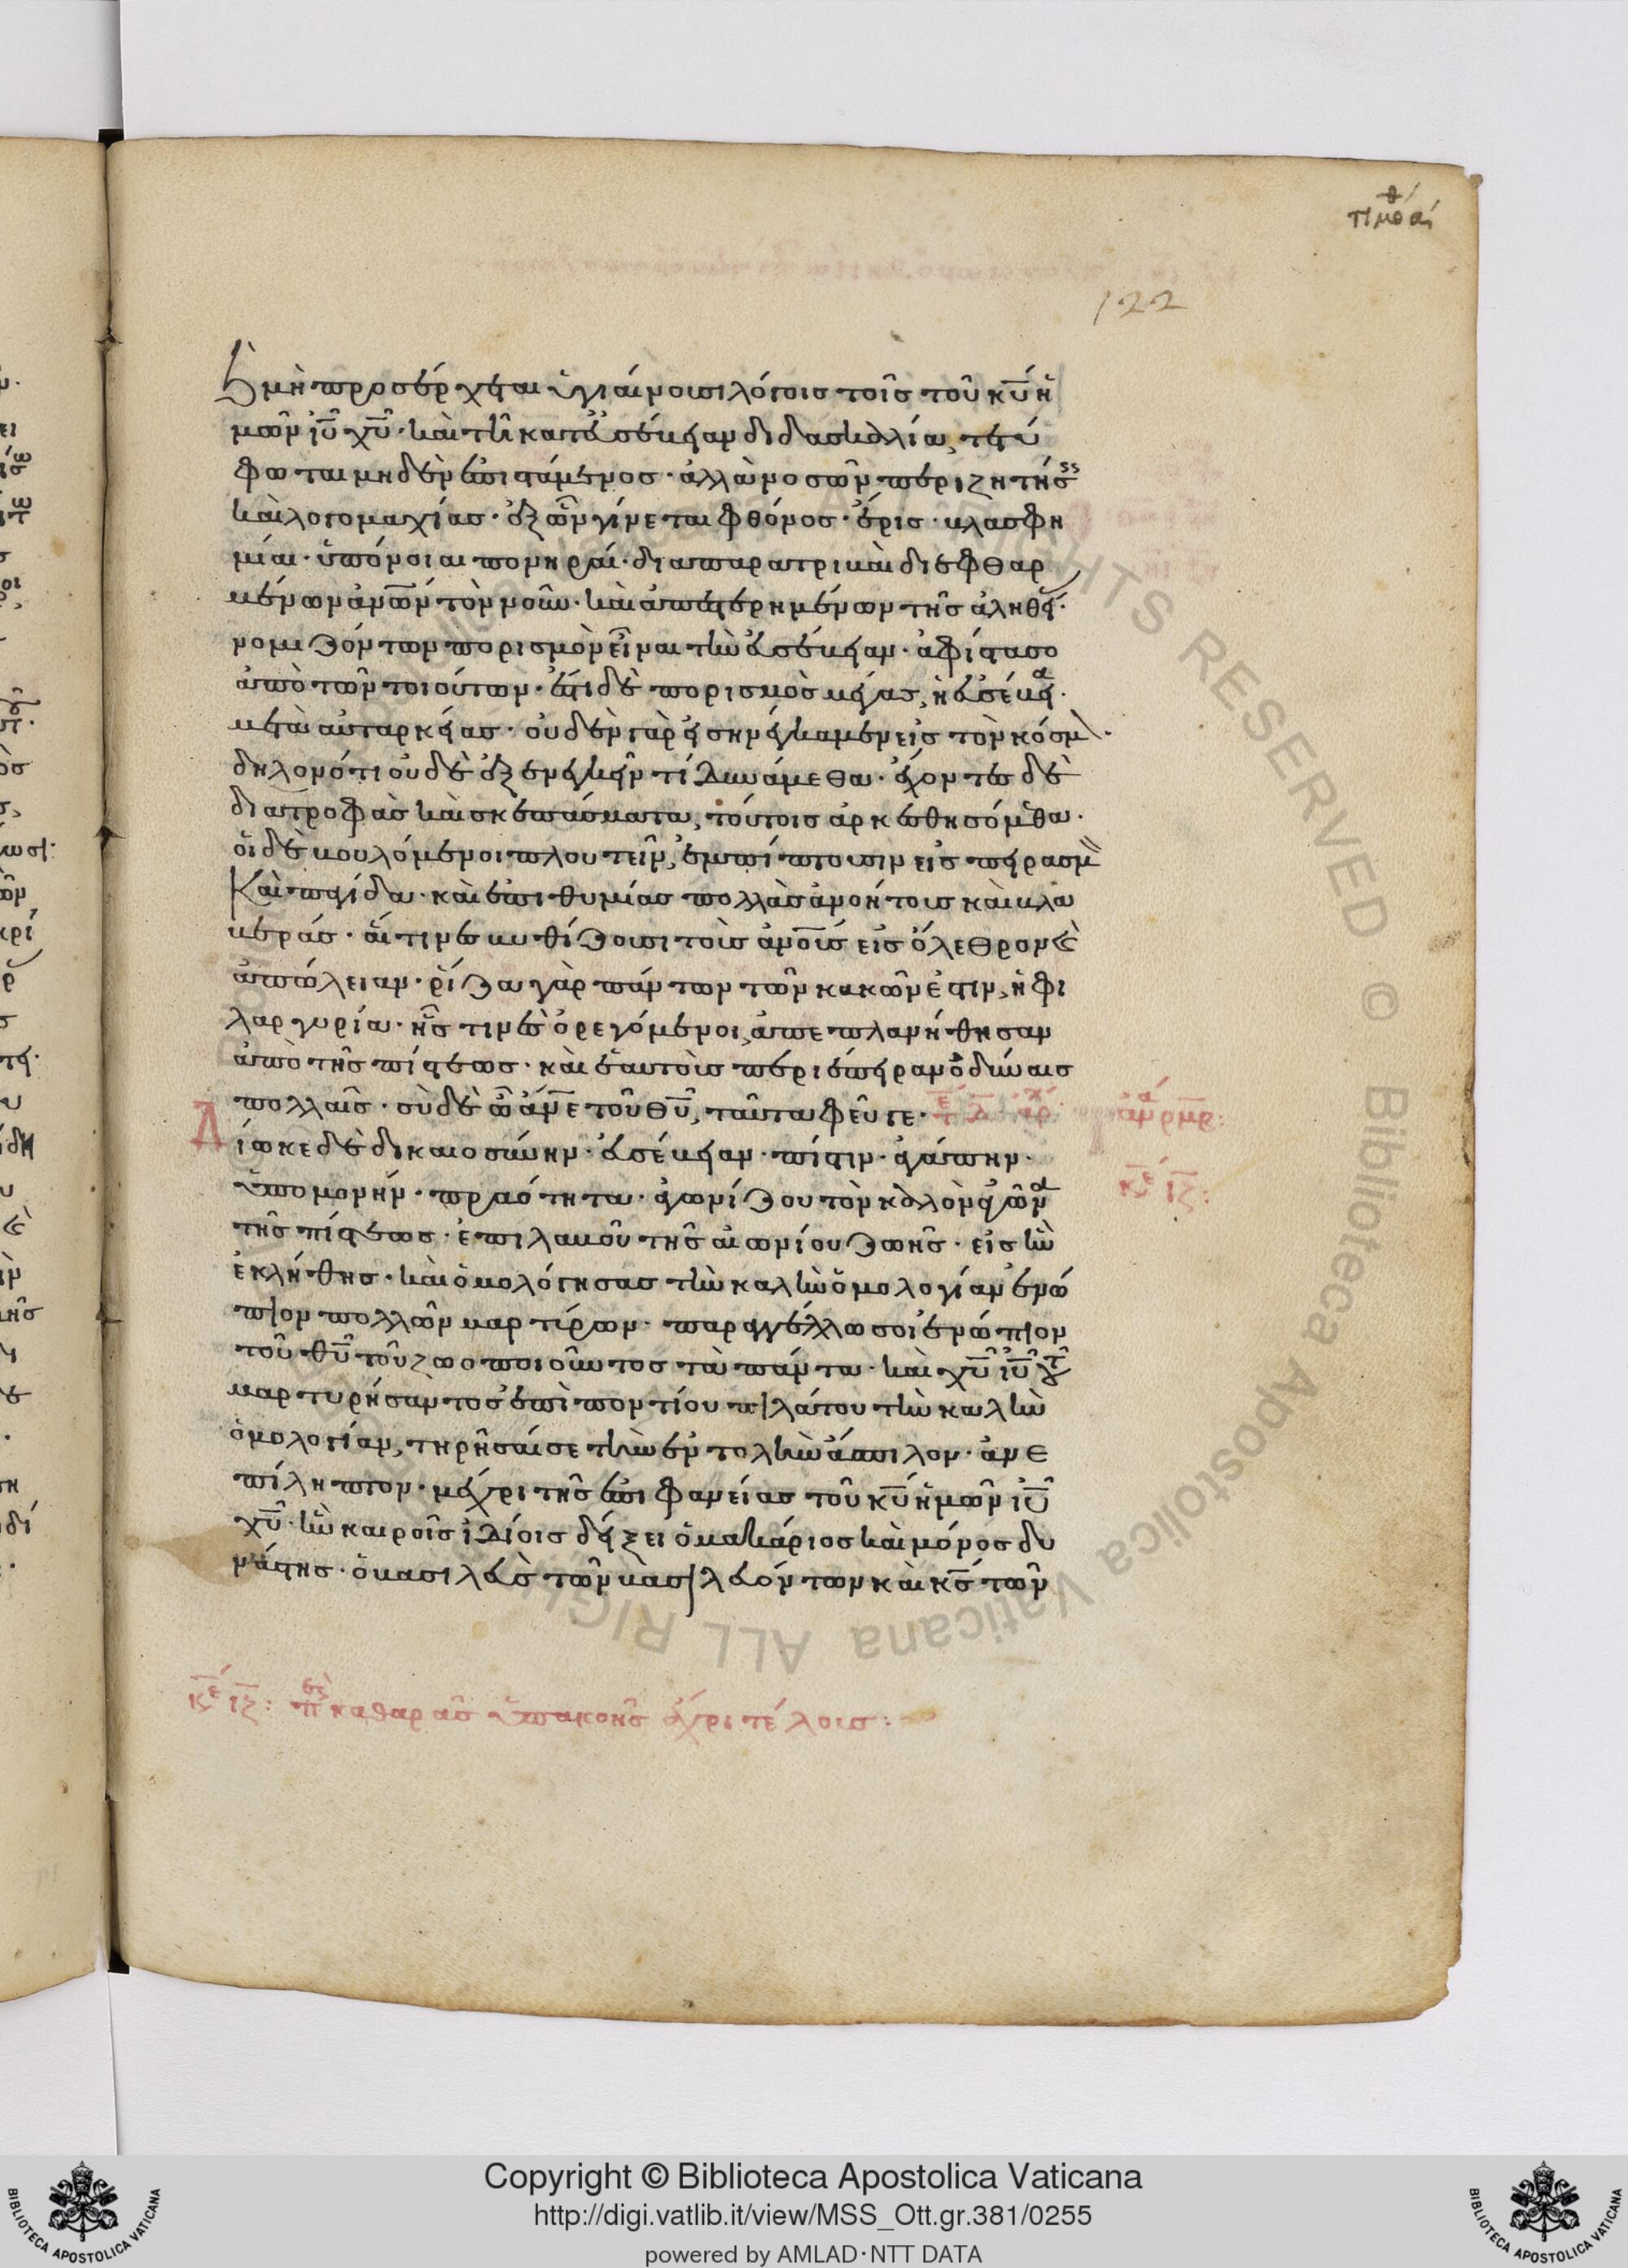 τιμοθ α
122
καὶ μὴ προσέρχεται ὑγιαίνουσι λόγοις τοῖς τοῦ κ̅υ̅ ἡ
μῶν ι̅υ̅ χ̅υ̅· καὶ τῆ κατ' εὐσέβειαν διδασκαλία, τετύ
φωται μηδὲν ἐπιστάμενος· ἀλλὰ νοσῶν περι ζητήσεις
καὶ λογομαχίας· ἐξ ὧν γίνεται φθόνος· ἔρις· βλασφη
μίαι· ὑπόνοιαι πονηραί· διαπαρατριβαὶ διεφθαρ
μένων ἀν̅ω̅ν τὸν νοῦν· καὶ ἀπεστερημένων τῆς ἀληθεί·
νομιζόντων πορισμὸν εἶναι τὴν εὐσέβειαν· ἀφίστασο
ἀπὸ τῶν τοιούτων· ἔστι δὲ πορισμὸς μέγας, ἡ εὐσέβεια·
μετὰ αὐταρκείας· οὐδὲν γὰρ εἰσηνέγκαμεν εἰς τὸν κόσμ·
δῆλον ὅτι οὐδὲ ἐξενεγκεῖν τί δυνάμεθα· ἔχοντες δὲ
διατροφὰς καὶ σκεπάσματα, τούτοις ἀρκεσθησόμεθα·
οἱ δὲ βουλόμενοι πλουτεῖν, ἐμπίπτουσιν εἰς πειρασμὸν
Καὶ παγίδα· καὶ ἐπιθυμίας πολλὰς ἀνοήτους καὶ βλα
βεράς· αἵτινες βυθίζουσι τοὺς ἀν̅ο̅υς εἰς ὄλεθρον καὶ
ἀπώλειαν· ῥίζα γὰρ πάντων τῶν κακῶν ἐστιν, ἡ φι
λαργυρία· ἧς τινὲς ὀρεγόμενοι, ἀπεπλανήθησαν
ἀπὸ τῆς πίστεως· καὶ ἑαυτοὺς περιέπειραν ὀδύναις
πολλαῖς· σὺ δὲ ὦ ἄν̅ε τοῦ θ̅υ̅, ταῦτα φεῦγε·
Δίωκε δὲ δικαιοσύνην· εὐσέβειαν· πίστιν· ἀγάπην·
ὑπομονήν· πραότητα· ἀγωνίζου τὸν καλὸν ἀγῶνα
τῆς πίστεως· ἐπιλαβοῦ τῆς αἰωνίου ζωῆς· εἰς ἣν
ἐκλήθης· καὶ ὁμολόγησας τὴν καλὴν ὁμολογίαν ἐνώ
πιον πολλῶν μαρτύρων· παραγγέλλω σοι ἐνώπιον
τοῦ θ̅υ̅ τοῦ ζωοποιοῦντος τὰ πάντα· καὶ χ̅υ̅ ι̅υ̅ τοῦ
μαρτυρήσαντος ἐπὶ ποντίου πιλάτου τὴν καλὴν
ὁμολογίαν, τηρῆσαί σε τὴν ἐντολὴν ἄσπιλον· ἀνε
πίληπτον· μέχρι τῆς ἐπιφανείας τοῦ κ̅υ̅ ἡμῶν ι̅υ̅
χ̅υ̅· ἣν καιροῖς ἰδίοις δείξει ὁ μακάριος καὶ μόνος δυ
νάστης· ὁ βασιλεὺς τῶν βασιλευόντων καὶ κ̅ς̅ τῶν
κε ιζ:
κε ιζ: καθαρᾶς ὑπακοῆς ἄχρι τέλους:
Copyright © Biblioteca Apostolica Vaticana
http://digi.vatlib.it/view/MSS_Ott.gr.381/0255
powered by AMLAD·NTT DATA
BIBLIOTECA APOSTOLICA VATICANA
BIBLIOTECA APOSTOLICA VATICANA